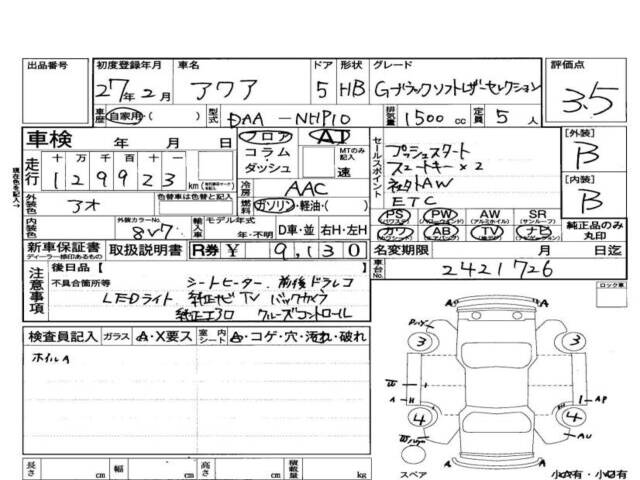 出品番号 初度登録年月 車名 ドア 形状 グレード 評価点
27年2月 アクア 5 HB Gブラックソフトレザーセレクション 3.5
車歴 自家用・( ) 型式 DAA-NHP10 排気量 1500cc 定員 5人
車検 年 月 日 フロア AT
走行 十 万 千 百 十 一 コラム・ダッシュ MTのみ記入 速
129923 km
冷房 AAC
外装色 アオ 色替車は色替と記入 燃料 ガソリン・軽油・( )
内装色 外装カラーNo. 8V7 輸入車 モデル年式 年・不明 D車・並 右H・左H
セールスポイント
プッシュスタート
スマートキー×2
社外AW
ETC
PS PW AW SR
(パワステ) (パワーウィンド) (アルミホイル) (サンルーフ)
カワ AB TV ナビ
純正品のみ丸印
[外装] B
[内装] B
新車保証書 取扱説明書 R券 ¥ 9,130
ディーラー捺印あるもの
名変期限 月 日迄
車台No. 2421726
注意事項 後日品【
不具合箇所等 シートヒーター 前後ドラレコ
LEDライト 純正ナビ TV バックカメラ
純正エアロ クルーズコントロール
検査員記入 ガラス A・X要ス 室内シート A・コゲ・穴・汚れ・破れ
ホイルA
ロック車
3 3
4 4
A H A P
A U
スペア 小A有・小B有
長さ cm 幅 cm 高さ cm 積載量 kg
現在色を記入→